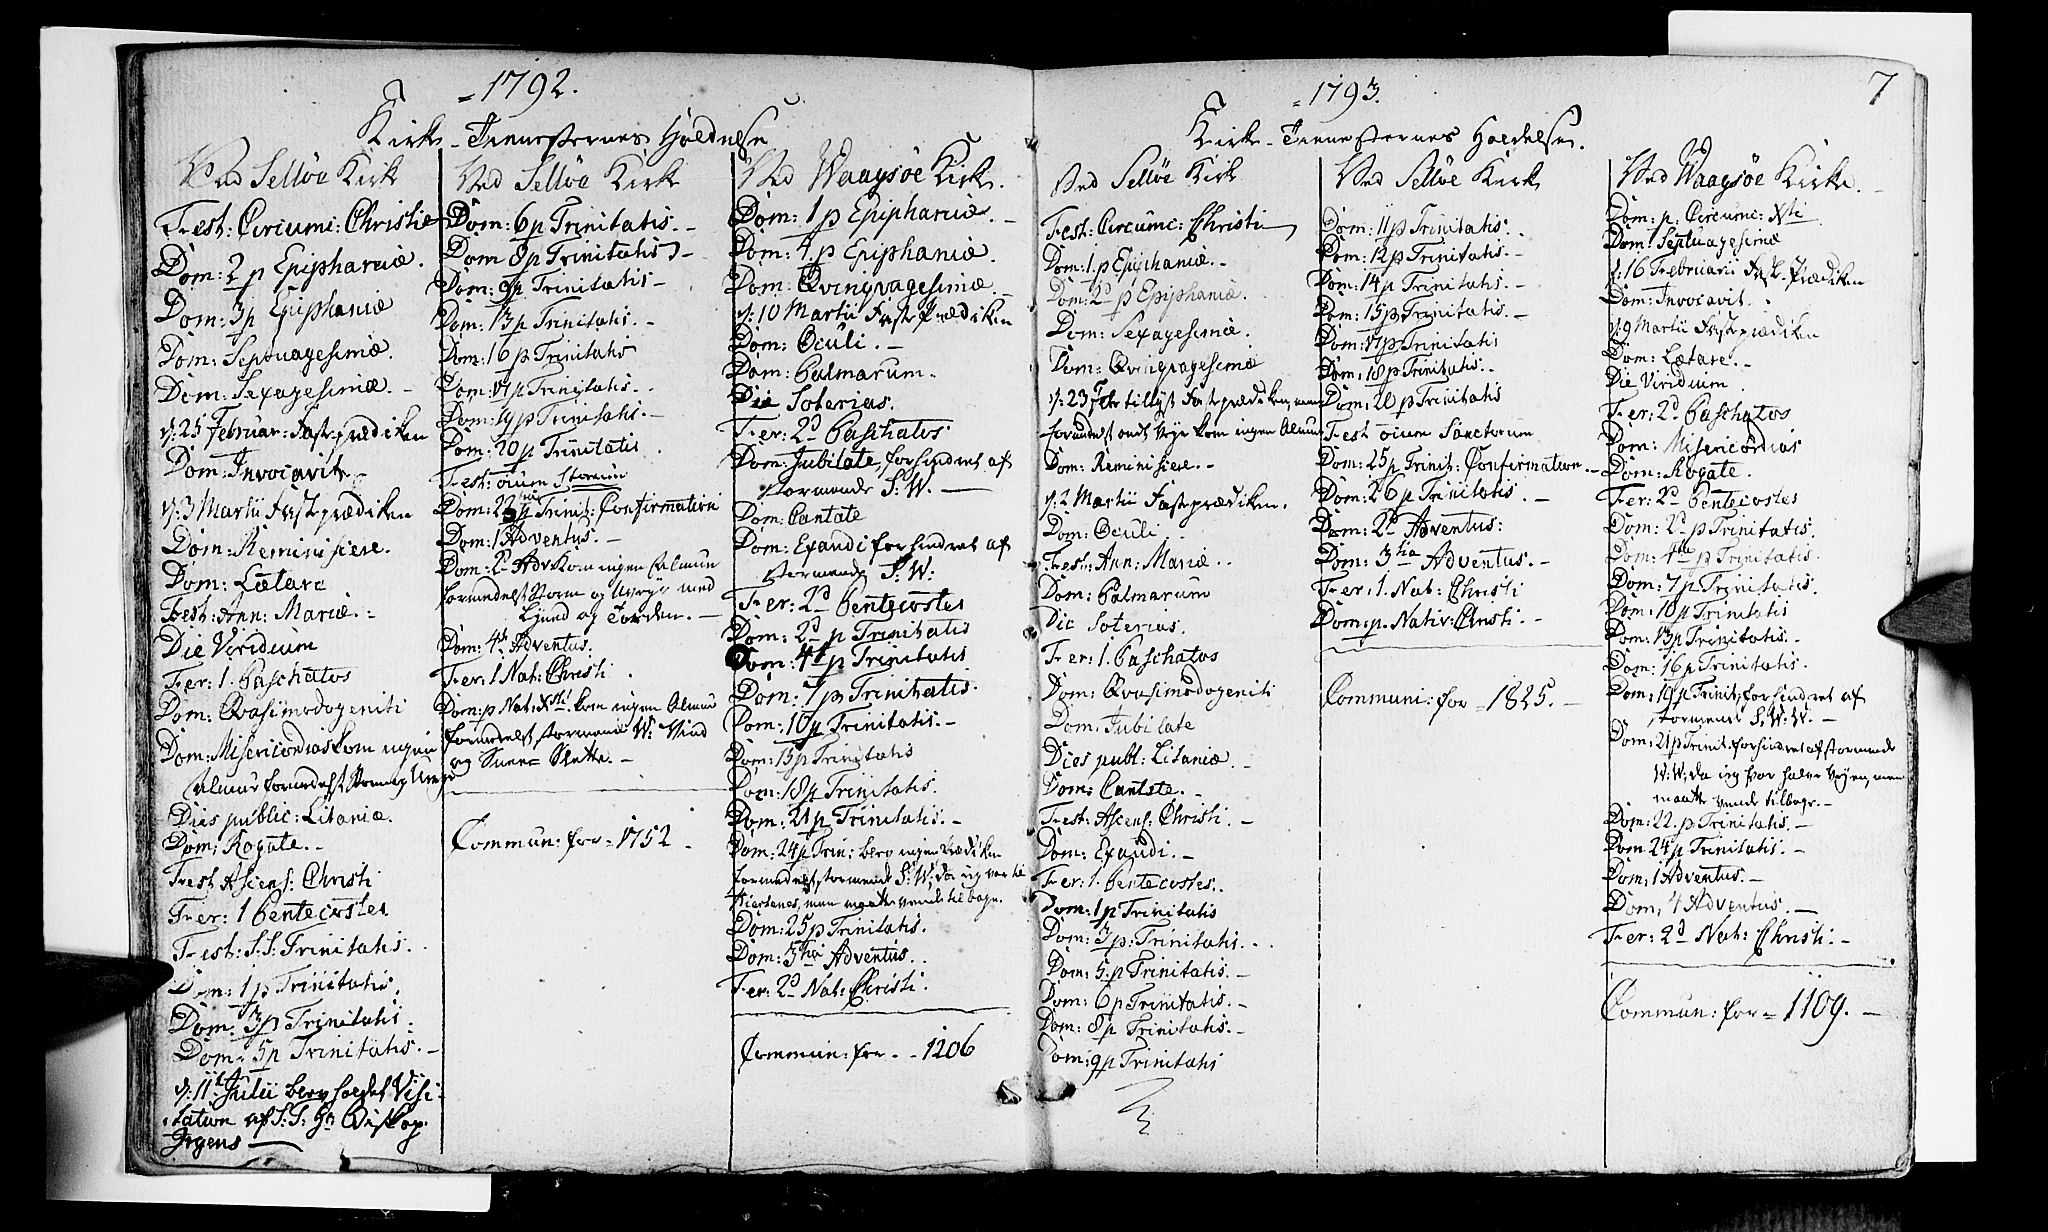 = 1792.
Kirke-Tienesternes Holdelse
Ved Selløe Kirk
Fest: Circumc: Christi
Dom: 2 p Epiphaniæ.
Dom: 3 p Epiphaniæ
Dom: Septuagesimæ.
Dom: Sexagesimæ. -
d: 25 Februar: Fasteprædiken
Dom: Invocavit. -
d: 3 Martii Fasteprædiken
Dom: Reminiscere.
Dom: Lætare
Fest: Ann: Mariæ. -
Die Viridium
Fer: 1. Paschatos
Dom: Qvasimodogeniti
Dom: Misericordias kom ingen
Almue formedelst Storm og
Dies public: Litaniæ.
Dom: Rogate. -
Fest Ascens: Christi
Fer: 1 Pentecostes
Fest: S. S. Trinitatis.
Dom: 1 p Trinitatis.
Dom: 3 p Trinitatis.
Dom: 5 p Trinitatis. -
d: 11t Julii blev holdet Visi-
tation af S: T: Hr Biskop
Irgens
Ved Selløe Kirk
Dom: 6 p Trinitatis. -
Dom 8 p Trinitatis -
Dom: 9 p Trinitatis -
Dom: 13 p Trinitatis. -
Dom: 16 p Trinitatis
Dom: 17 p Trinitatis.
Dom: 19 p Trinitatis. -
Dom: 20 p Trinitatis
Fest: oium Storum
Dom: 23 p Trinit: Confirmation
Dom: 1 Adventus. -
Dom: 2d Adv kom ingen Almue
formedelst Storm og Uveyr med
Liund og Torden. -
Dom: 4t Adventus.
Fer: 1 Nat: Christi
Dom: p Nat: Xsti. kom ingen Almue
formedelst stormende W: Vind
og Snee-Slette. -
Commun: for = 1752 -
Ved Waagsøe Kirke.
Dom: 1 p Epiphaniæ. -
Dom: 4 p Epiphaniæ.
Dom: Qvinqvagesimæ. -
d: 10 Martii Fasteprædiken
Dom: Oculi. -
Dom: Palmarum.
Die Soterias.
Fer: 2d Paschatos
Dom: Jubilate, forhindret af
stormende S: W. -
Dom: Cantate
Dom: Exaudi forhindret af
stormende S: W:
Fer: 2d Pentecostes
Dom: 2d p Trinitatis
Dom: 4t p Trinitatis
Dom: 7 p Trinitatis.
Dom: 10 p Trinitatis. -
Dom: 15 p Trinitatis
Dom: 18 p Trinitatis.
Dom: 21 p Trinitatis. -
Dom: 24 p Trin: blev ingen Prædiken
formedelst stormende S: W, da jeg var til
men maatte vende tilbage.
Dom: 25 p Trinitatis.
Dom: 3tia Adventus.
Fer: 2d Nat: Christi.
Commun: for - - 1206
7
= 1793.
Kirke-Tienesternes Holdelse.
Ved Selløe Kirk
Fest: Circumc: Christi
Dom: 1 p Epiphaniæ. -
Dom: 2d p Epiphaniæ.
Dom: Sexagesimæ.
Dom: Qvinqvagesimæ
d: 23 Febr tillyst Fasteprædiken, men
formedelst ondt Veyr kom ingen Almue
Dom: Reminiscere. -
d: 2 Martii Fasteprædiken.
Dom: Oculi.
Fest: Ann: Mariæ.
Dom: Palmarum
Die Soterias.
Fer: 1. Paschatos
Dom: Qvasimodogeniti
Dom. Jubilate
Dies publ: Litaniæ.
Dom: Cantate. -
Fest: Ascens: Christi. -
Dom: Exaudi. -
Fer: 1. Pentecostes.
Dom: 1 p Trinitatis
Dom: 3 p: Trinitatis.
Dom: 5. p Trinitatis. -
Dom: 6 p Trinitatis. -
Dom: 8 p Trinitatis. -
Dom: 9 p Trinitatis
Ved Selløe Kirk
Dom: 11 p Trinitatis.
Dom: 12 p Trinitatis. -
Dom: 14 p Trinitatis. -
Dom: 15 p Trinitatis. -
Dom: 17 p Trinitatis
Dom: 18 p Trinitatis.
Dom: 20 p Trinitatis
Fest oium Sanctorum
Dom: 25 p Trinit: Confirmation. -
Dom: 26 p Trinitatis. -
Dom: 2d Adventus:
Dom: 3tia Adventus. -
Fer: 1. Nat: Christi
Dom: p. Nativ: Christi. -
Communi: for = 1825. -
Ved Waagsøe Kirke. -
Dom: p. Circumc: Xsti
Dom: Septuagesimæ
d: 16 Februarii Fast-Prædiken
Dom: Invocavit.
d: 9 Martii Fastprædiken
Dom: Lætare. -
Die Viridium
Fer: 2d Paschatos
Dom: Misericordias
Dom: Rogate.
Fer: 2d Pentecostes
Dom: 2d p Trinitatis.
Dom: 4te p Trinitatis.
Dom: 7 p Trinitatis.
Dom: 10 p Trinitatis
Dom: 13 p Trinitatis. -
Dom: 16 p Trinitatis.
Dom: 19 p Trinit, forhindret af
stormende S. W. W. -
Dom: 21 p Trinit: forhindret af stormende
W: W: da jeg var halv Veyen, men
maatte vende tilbage. -
Dom: 22. p Trinitatis. -
Dom: 24 p Trinitatis. -
Dom: 1 Adventus. -
Dom: 4 Adventus. -
Fer: 2d Nat: Christi. -
Commun: for = 1109. -